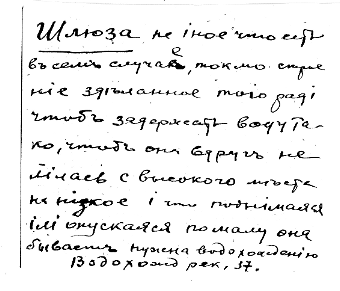 Шлюза не iное что есть
въ семъ случаѣ, токмо строе
нiе здѣланное того радi
чтобъ задержать воду та-
ко, чтобъ она вдругъ не
лiлась с высокого мѣста
на нiзкое i что поднiмаяся
iлi опускаяся помалу она
бываетъ нужна водохожденiю
Водоходж рек. 37.